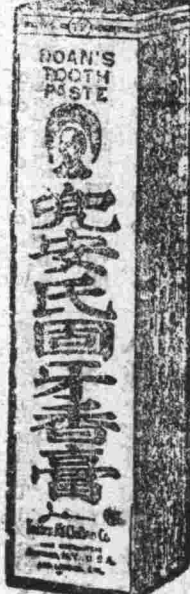 DOAN'S
TOOTH
PASTE
兜安氏固牙香膏
Foster McClellan Co.